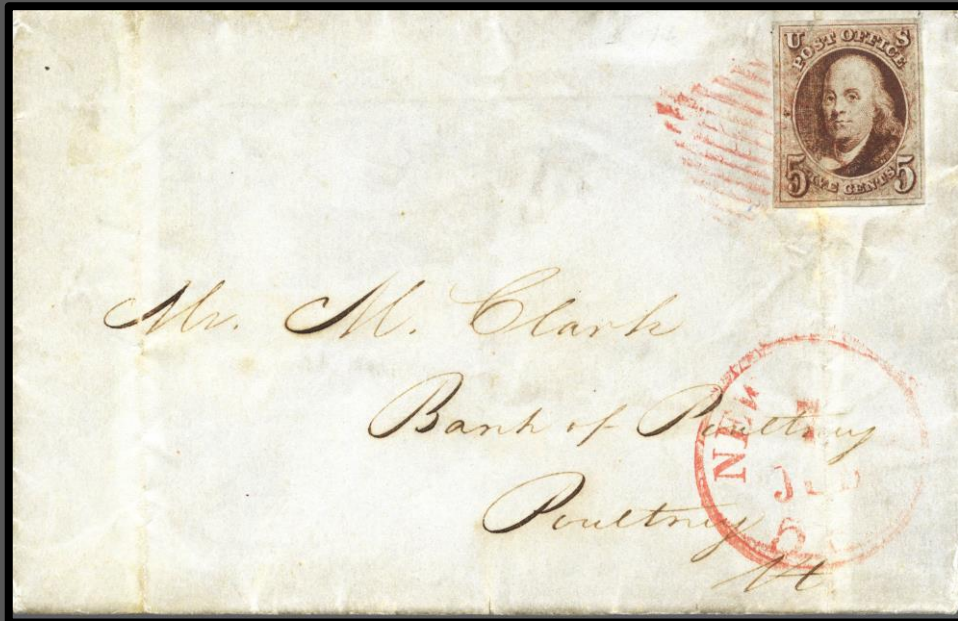 U S
POST OFFICE
5 FIVE CENTS 5
Mr. M. Clark
Bank of Poultney
Poultney
Vt.
NEW
5